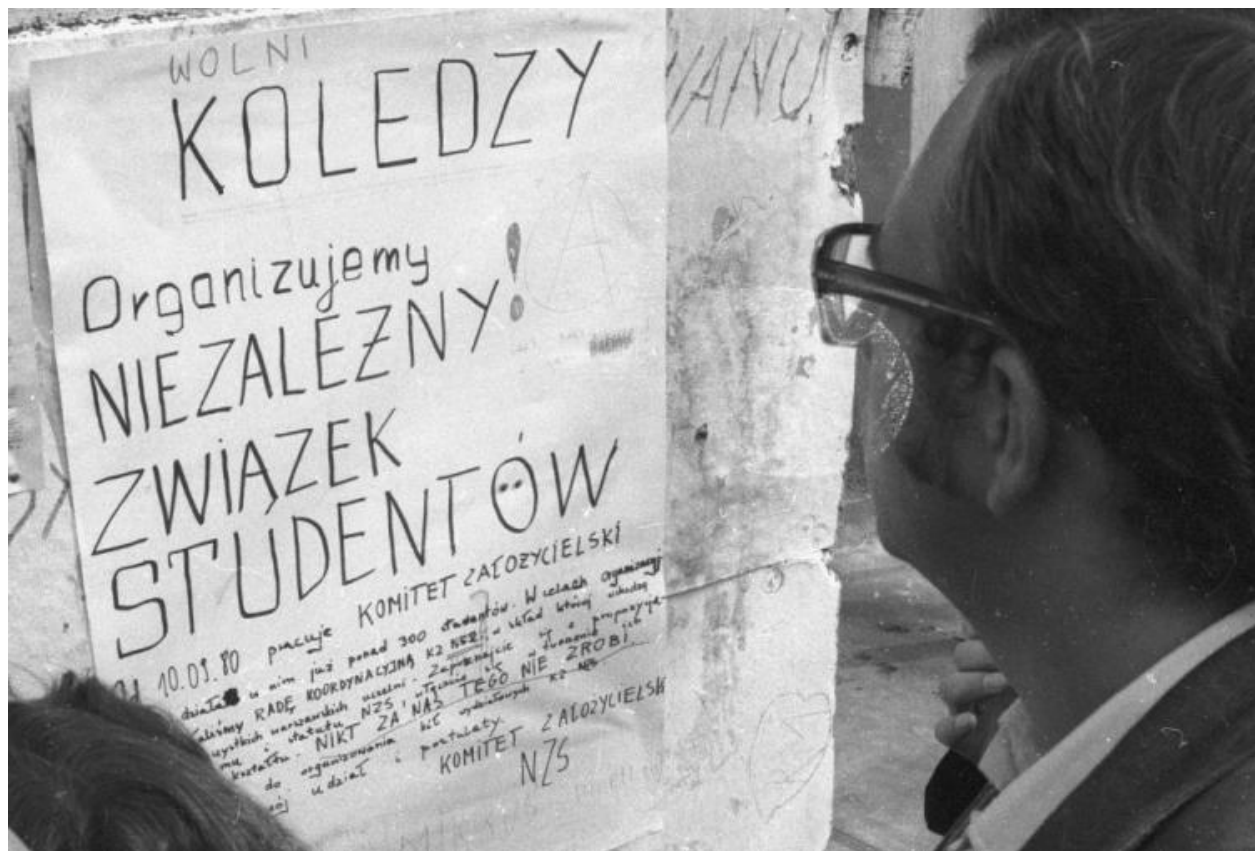 WOLNI
KOLEDZY
WANU!
Organizujemy
NIEZALEŻNY!
ZWIĄZEK
STUDENTÓW
10.09.80 pracuje KOMITET ZAŁOŻYCIELSKI
działa u nim już ponad 300 studentów. W celach
RADĘ KOORDYNACYJNĄ KZ NZS, w skład której
warszawskich uczelni. Zapoznajcie się z
i statutu NZS,
kształtu. NIKT ZA NAS TEGO NIE ZROBI
do organizowania kół wydziałowych KZ NZS
udział i postulaty.
KOMITET ZAŁOŻYCIELSK
NZS